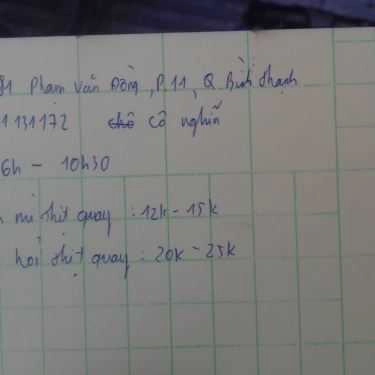 91 Phạm Văn Đồng, P.11, Q Bình Thạnh
1131172 cô nghĩn
6h - 10h30
mì thịt quay : 12k - 15k
hỏi thịt quay : 20k - 25k